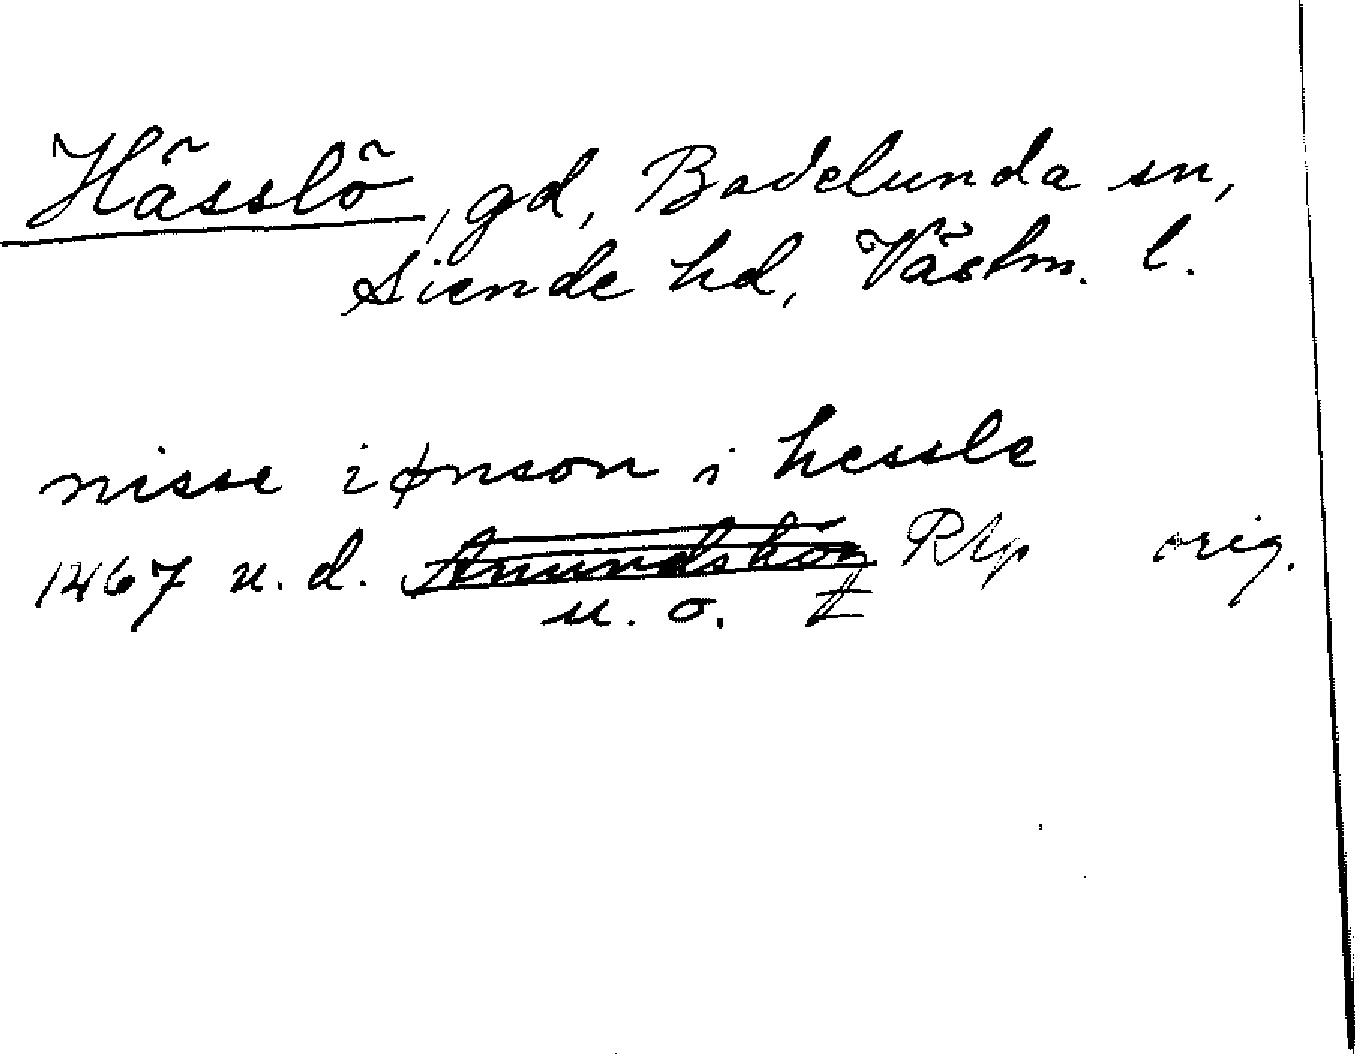 Hässlö, gd, Badelunda sn,
Siende hd, Västm. l.
nisse iønson i hessle
1467 u.d. Anundshög Rap orig.
u. o.